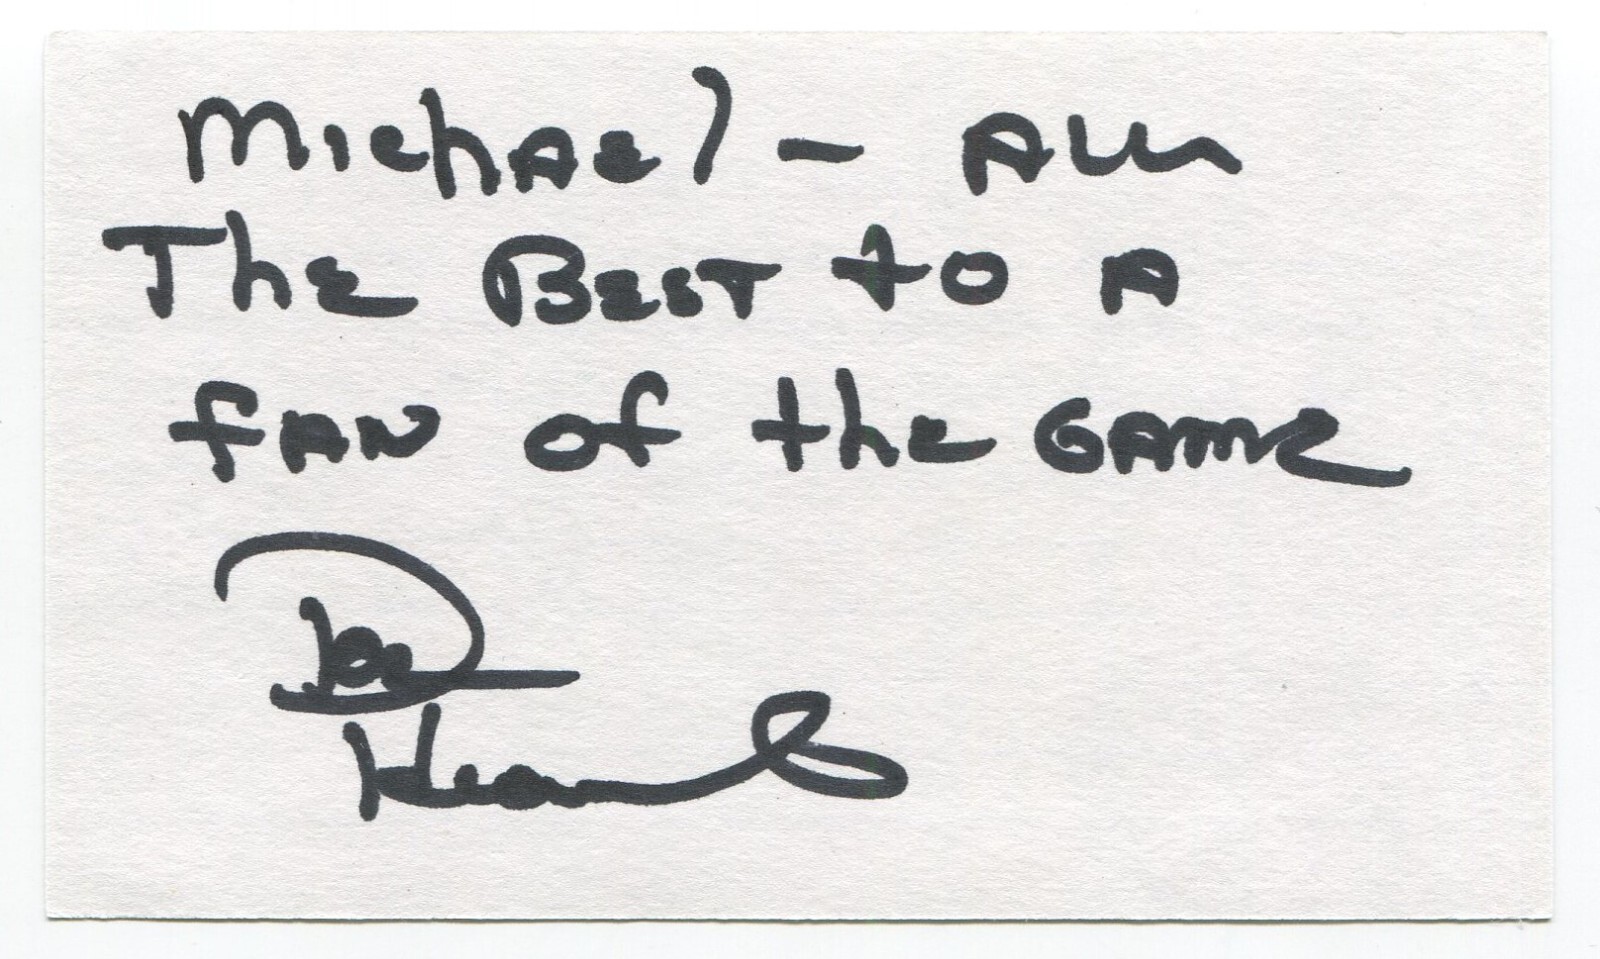 Michael - All
The Best to A
fan of the Game